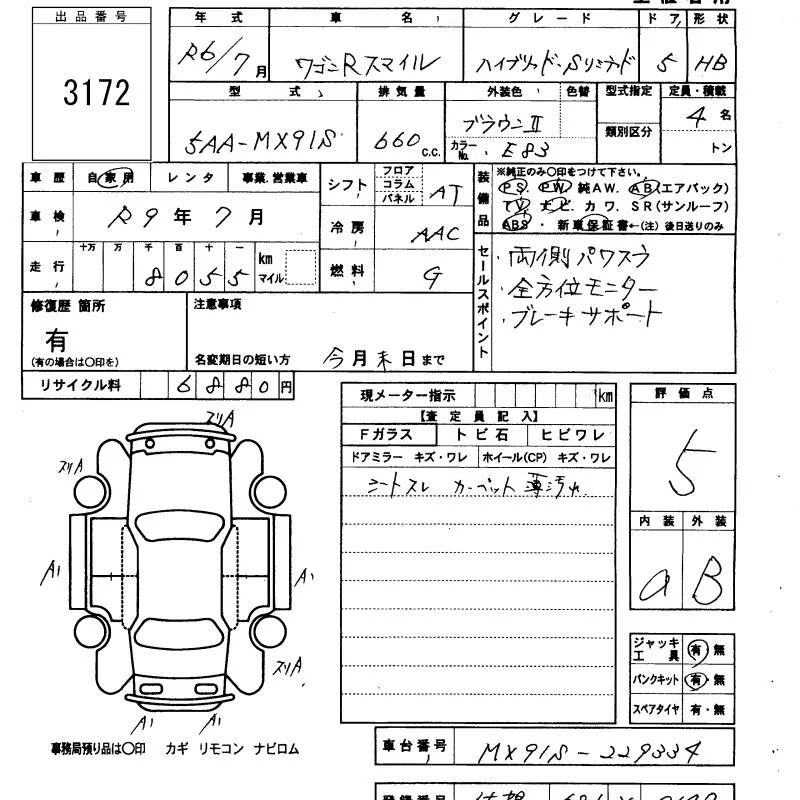 出品番号
3172
年式 車名 グレード ドア 形状
R6/7月 ワゴンRスマイル ハイブリッド・Sリミテッド 5 HB
型式 排気量 外装色 色替 型式指定 定員・積載
5AA-MX91S 660 c.c. ブラウンII 類別区分 4名
カラーNo. E83 トン
車歴 自家用 レンタ 事業.営業車
車検 R9年7月
走行 十万 万 千 百 十 一 km マイル
8055
シフト フロア コラム パネル AT
冷房 AAC
燃料 G
装備品
※純正のみ〇印をつけて下さい。
PS. PW. 純AW. AB(エアバック)
TV. ナビ. カワ. SR(サンルーフ)
ABS. 新車保証書←(注)後日送りのみ
セールスポイント
・両側パワスラ
・全方位モニター
・ブレーキサポート
修復歴 箇所
有
(有の場合は〇印を)
注意事項
名変期日の短い方 今月末日まで
リサイクル料 6880円
現メーター指示 km
【査定員記入】
Fガラス トビ石 ヒビワレ
ドアミラー キズ・ワレ ホイール(CP) キズ・ワレ
シートスレ カーペット薄汚れ
評価点
5
内装 外装
a B
ジャッキ工具 有・無
パンクキット 有・無
スペアタイヤ 有・無
スリA
スリA
A1 A1
スリA
A1 A1
事務局預り品は〇印 カギ リモコン ナビロム
車台番号 MX91S-229334